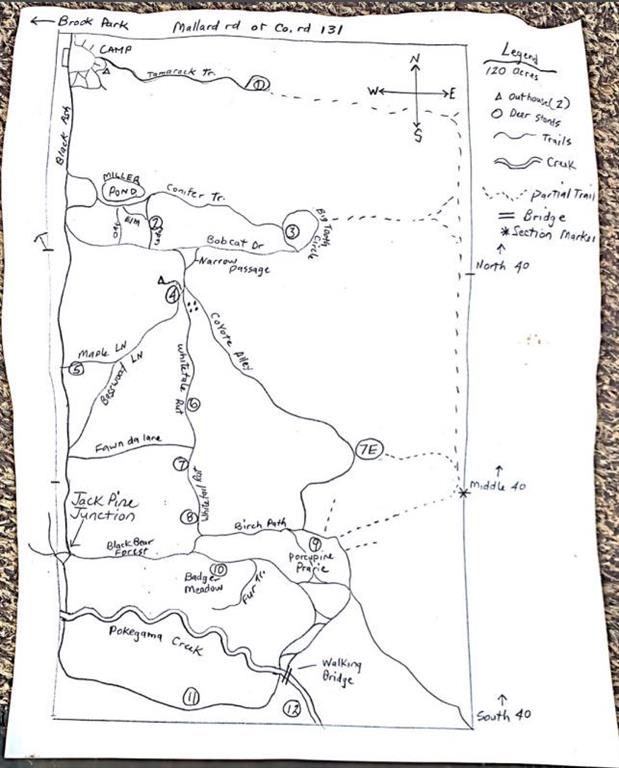 ← Brook Park
Mallard rd or Co. rd 131
CAMP
Tamarack Tr.
1
N
W
E
S
Legend
120 Acres
Δ Outhouse (2)
O Deer Stands
Trails
Creek
Partial Trail
= Bridge
* Section Marker
MILLER
POND
Conifer Tr.
ELM
2
3
Big Tooth
Circle
Bobcat Dr
Narrow
Passage
North 40
4
Coyote Alley
Maple LN
5
Basswood LN
Whitetail Rut
6
Fawn da lane
7
7E
Middle 40
Whitetail Rut
Jack Pine
Junction
8
Birch Path
Black Bear
Forest
9
Porcupine
Prairie
10
Badger
Meadow
Fur Tr.
Pokegama Creek
Walking
Bridge
11
12
South 40